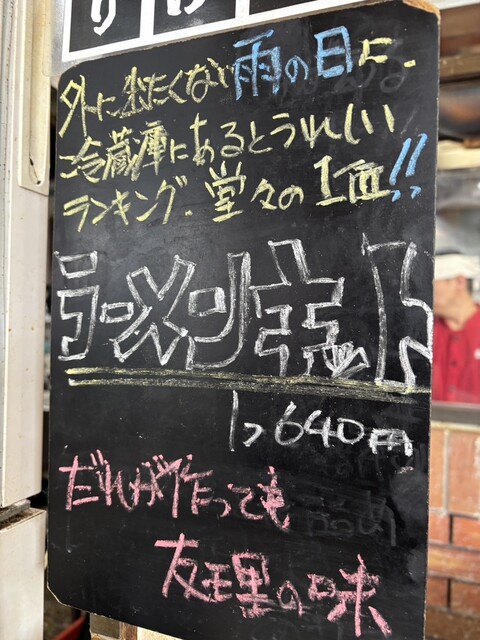 外に出たくない雨の日に、
冷蔵庫にあるとうれしい
ランキング。堂々の1位!!
ラーメンキット
1つ640円
だれが作っても
友理の味